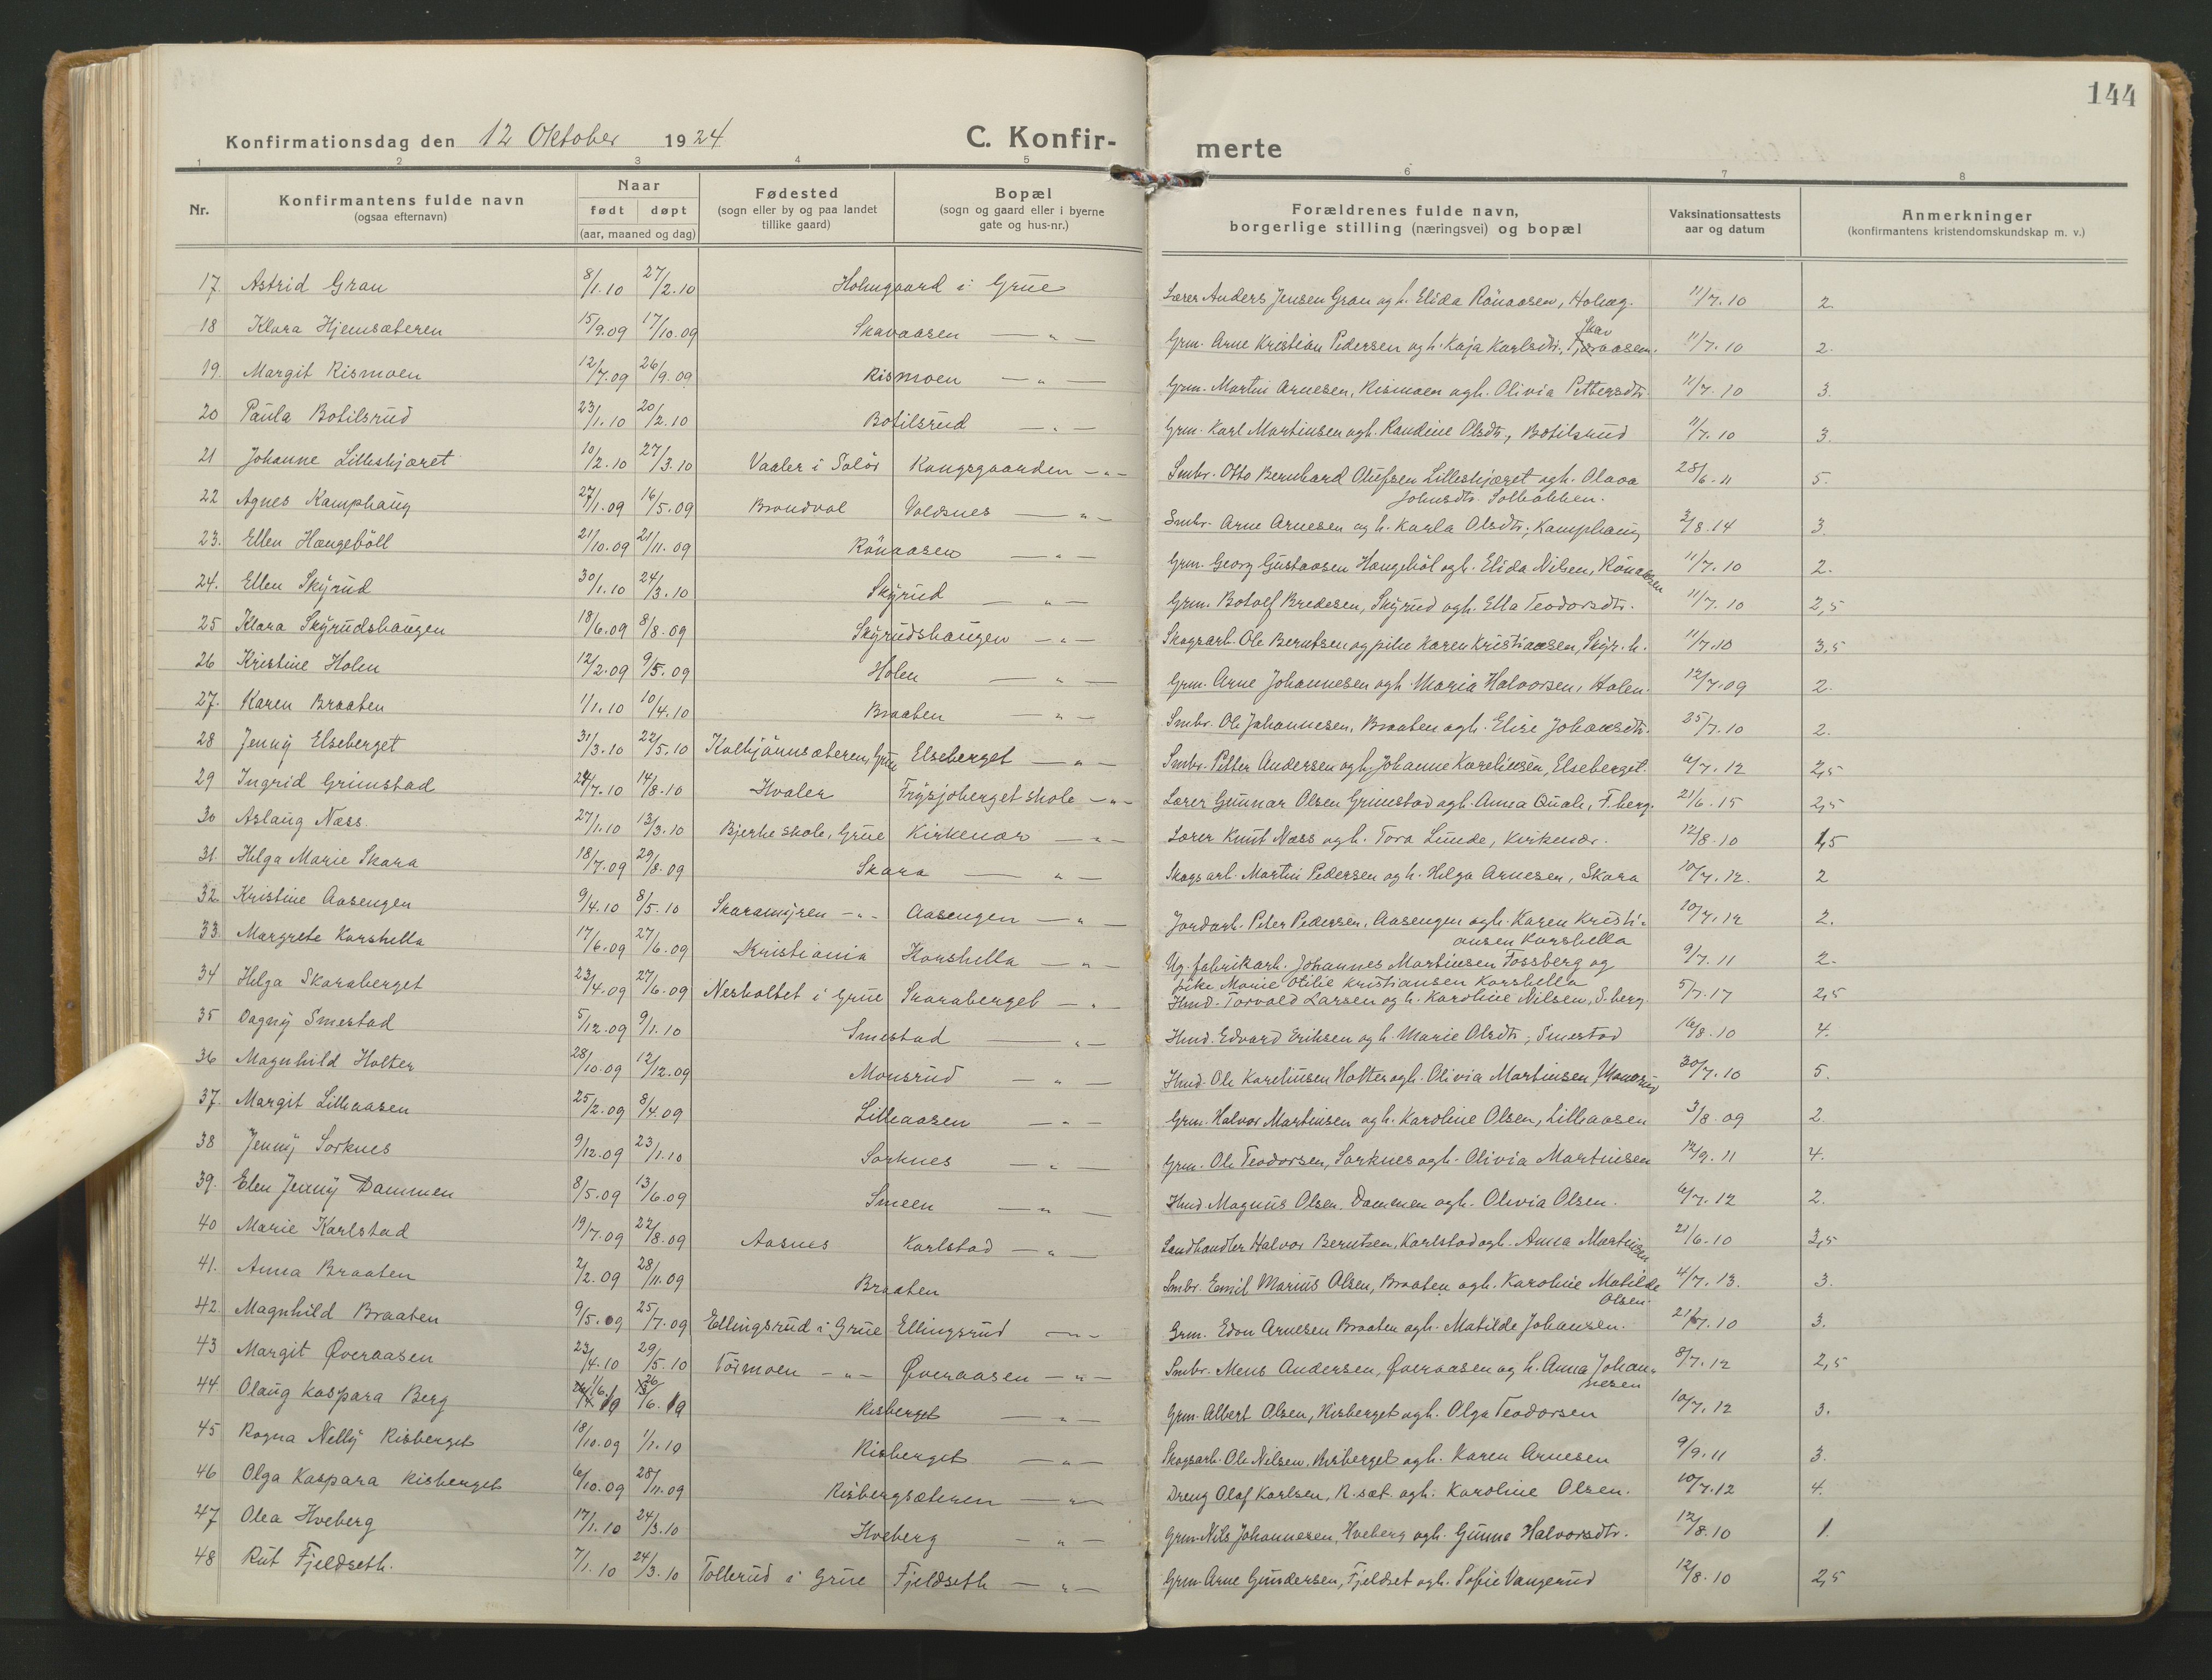 144
Konfirmationsdag den 12 Oktober 1924 C. Konfir- merte
1 2 3 4 5 6 7 8
Nr. Konfirmantens fulde navn (ogsaa efternavn) Naar født døpt (aar, maaned og dag) Fødested (sogn eller by og paa landet tillike gaard) Bopæl (sogn og gaard eller i byerne gate og hus-nr.) Forældrenes fulde navn, borgerlige stilling (næringsvei) og bopæl Vaksinationsattests aar og datum Anmerkninger (konfirmantens kristendomskundskap m. v.)
17 Astrid Gran 8/1.10 27/2.10 Holmgaard i Grue Lærer Anders Jensen Gran og h. Elida Rönaasen, Holmg. 11/7.10 2.
18 Klara Hjemsæteren 15/9.09 17/10.09 Skavaasen — " — Grm. Arne Kristian Pedersen og h. Kaja Karlsdtr., Skavaasen. 11/7.10 2.
19. Margit Rismoen 12/7.09 26/9.09 Rismoen — " — Grm. Martin Arnesen, Rismoen og h. Olivia Pettersdtr. 11/7.10 3.
20 Paula Botilsrud 23/1.10 20/2.10 Botilsrud — " — Grm. Karl Martinsen og h. Randine Olsdtr., Botilsrud 11/7.10 3.
21 Johanne Lilleskjæret 10/2.10 27/3.10 Vaaler i Solör Kongsgaarden — " — Smbr. Otto Bernhard Olufsen Lilleskjæret og h. Olava Johnsdtr. Solbakken. 28/6.11 5.
22 Agnes Kamphaug 27/1.09 16/5.09 Brandval Voldnes — " — Smbr. Arne Arnesen og h. Karla Olsdtr., Kamphaug 3/8.14 3.
23. Ellen Hængeböll 21/10.09 21/11.09 Rönaasen — " — Grm. Georg Gustavsen Hængeböl og h. Elida Nilsen, Rönaasen 11/7.10 2.
24. Ellen Skyrud 30/1.10 24/3.10 Skyrud — " — Grm. Botolf Bredesen, Skyrud og h. Ella Teodorsdtr. 11/7.10 2,5
25 Klara Skyrudshaugen 18/6.09 8/8.09 Skyrudshaugen — " — Skogsarb. Ole Berntsen og pike Karen Kristiansen, Skyr. h. 11/7.10 3,5
26 Kristine Holen 12/2.09 9/5.09 Holen — " — Grm. Arne Johannesen og h. Maria Halvorsen, Holen. 12/7.09 2.
27. Karen Braaten 1/1.10 10/4.10 Braaten — " — Smbr. Ole Johannesen, Braaten og h. Elise Johansdtr. 25/7.10 2.
28 Jenny Elseberget 31/3.10 22/5.10 Koltjännsæteren, Grue Elseberget — " — Smbr. Petter Andersen og h. Johanne Karelinsen, Elseberget. 6/7.12 2,5
29 Ingrid Grimstad 24/7.10 14/8.10 Hvaler Frysjoberget skole — " — Lærer Gunnar Olsen Grimstad og h. Anna Quale, F. berg. 21/6.15 2,5
30 Aslaug Næss. 27/1.10 13/3.10 Bjerke skole, Grue Kirkenær — " — Lærer Knut Næss og h. Tora Lunde, Kirkenær. 12/8.10 1,5
31. Helga Marie Skara 18/7.09 29/8.09 Skara — " — Skogsarb. Martin Pedersen og h. Helga Arnesen, Skara 10/7.12. 2
32. Kristine Aasengen 9/4.10 8/5.10 Skaramyren — " — Aasengen — " — Jordarb. Peter Pedersen, Aasengen og h. Karen Kristiansen Korshella 10/7.12 2.
33. Margrete Korshella 17/6.09 27/6.09 Kristiania Korshella — " — Ug. fabrikarb. Johannes Martinsen Fossberg og pike Marie Otilie Kristiansen Korshella 9/7.11 2.
34 Helga Skaraberget 23/4.09 27/6.09 Nesholtet i Grue Skaraberget — " Hmd. Torvald Larsen og h. Karoline Nilsen, S. berg. 5/7.17 2,5
35 Dagny Smestad 5/12.09 9/1.10 Smestad — " — Hmd. Edvard Eriksen og h. Marie Olsdtr., Smestad 16/8.10 4.
36 Magnhild Holter 28/10.09 12/12.09 Monsrud — " — Hmd. Ole Karelinsen Holter og h. Olivia Martinsen, Monsrud 30/7.10 5.
37. Margit Lilleaasen 25/2.09 8/4.09 Lilleaasen — " — Grm. Halvor Martinsen og h. Karoline Olsen, Lilleaasen 3/8.09 2.
38 Jenny Sorknes 9/12.09 23/1.10 Sorknes — " — Grm. Ole Teodorsen, Sorknes og h. Olivia Martinsen 12/9.11 4.
39. Elen Jenny Dammen 8/5.09 13/6.09 Smeen — " — Hmd Magnus Olsen. Dammen og h. Olivia Olsen. 6/7.12 2.
40 Marie Karlstad 19/7.09 22/8.09 Aasnes Karlstad — " — Landhandler Halvor Berntsen, Karlstad og h. Anna Martinsen 21/6.10 3,5
41. Anna Braaten 2/2.09 28/11.09 Braaten Smbr. Emil Marius Olsen, Braaten og h. Karoline Matilde Olsen. 4/7.13. 3.
42. Magnhild Braaten 9/5.09 25/7.09 Ellingsrud i Grue Ellingsrud — " — Grm. Edon Arnesen Braaten og h. Matilde Johansen. 21/7.10 3.
43 Margit Øveraasen 23/4.10 29/5.10 Törmoen — " — Øveraasen — " — Smbr. Mens Andersen, Øveraasen og h. Anna Johannesen 8/7.12 2,5
44 Olaug Kaspara Berg 1/6. 09 26/6. 09 Risberget — " — Grm. Albert Olsen, Risberget og h. Olga Teodorsen 10/7.12 3.
45 Ragna Nelly Risberget 18/10.09 1/1.10 Risberget — " — Skogsarb. Ole Nilsen, Risberget og h. Karen Arnesen 9/9.11 3.
46 Olga Kaspara Risberget 6/10.09 28/11.09 Risbergsæteren — " — Dreng Olaf Karlsen, R. sæt. og h. Karoline Olsen. 10/7.12 4.
47 Olea Hveberg 17/1.10 24/3.10 Hveberg — " — Grm. Nils Johannesen, Hveberg og h. Gunna Halvorsdtr. 12/8.10 1.
48 Rut Fjeldseth. 7/1.10 24/3.10 Tollerud i Grue Fjeldseth — " — Grm. Arne Gundersen, Fjeldset og h. Sofie Vangerud 12/8.10 2,5